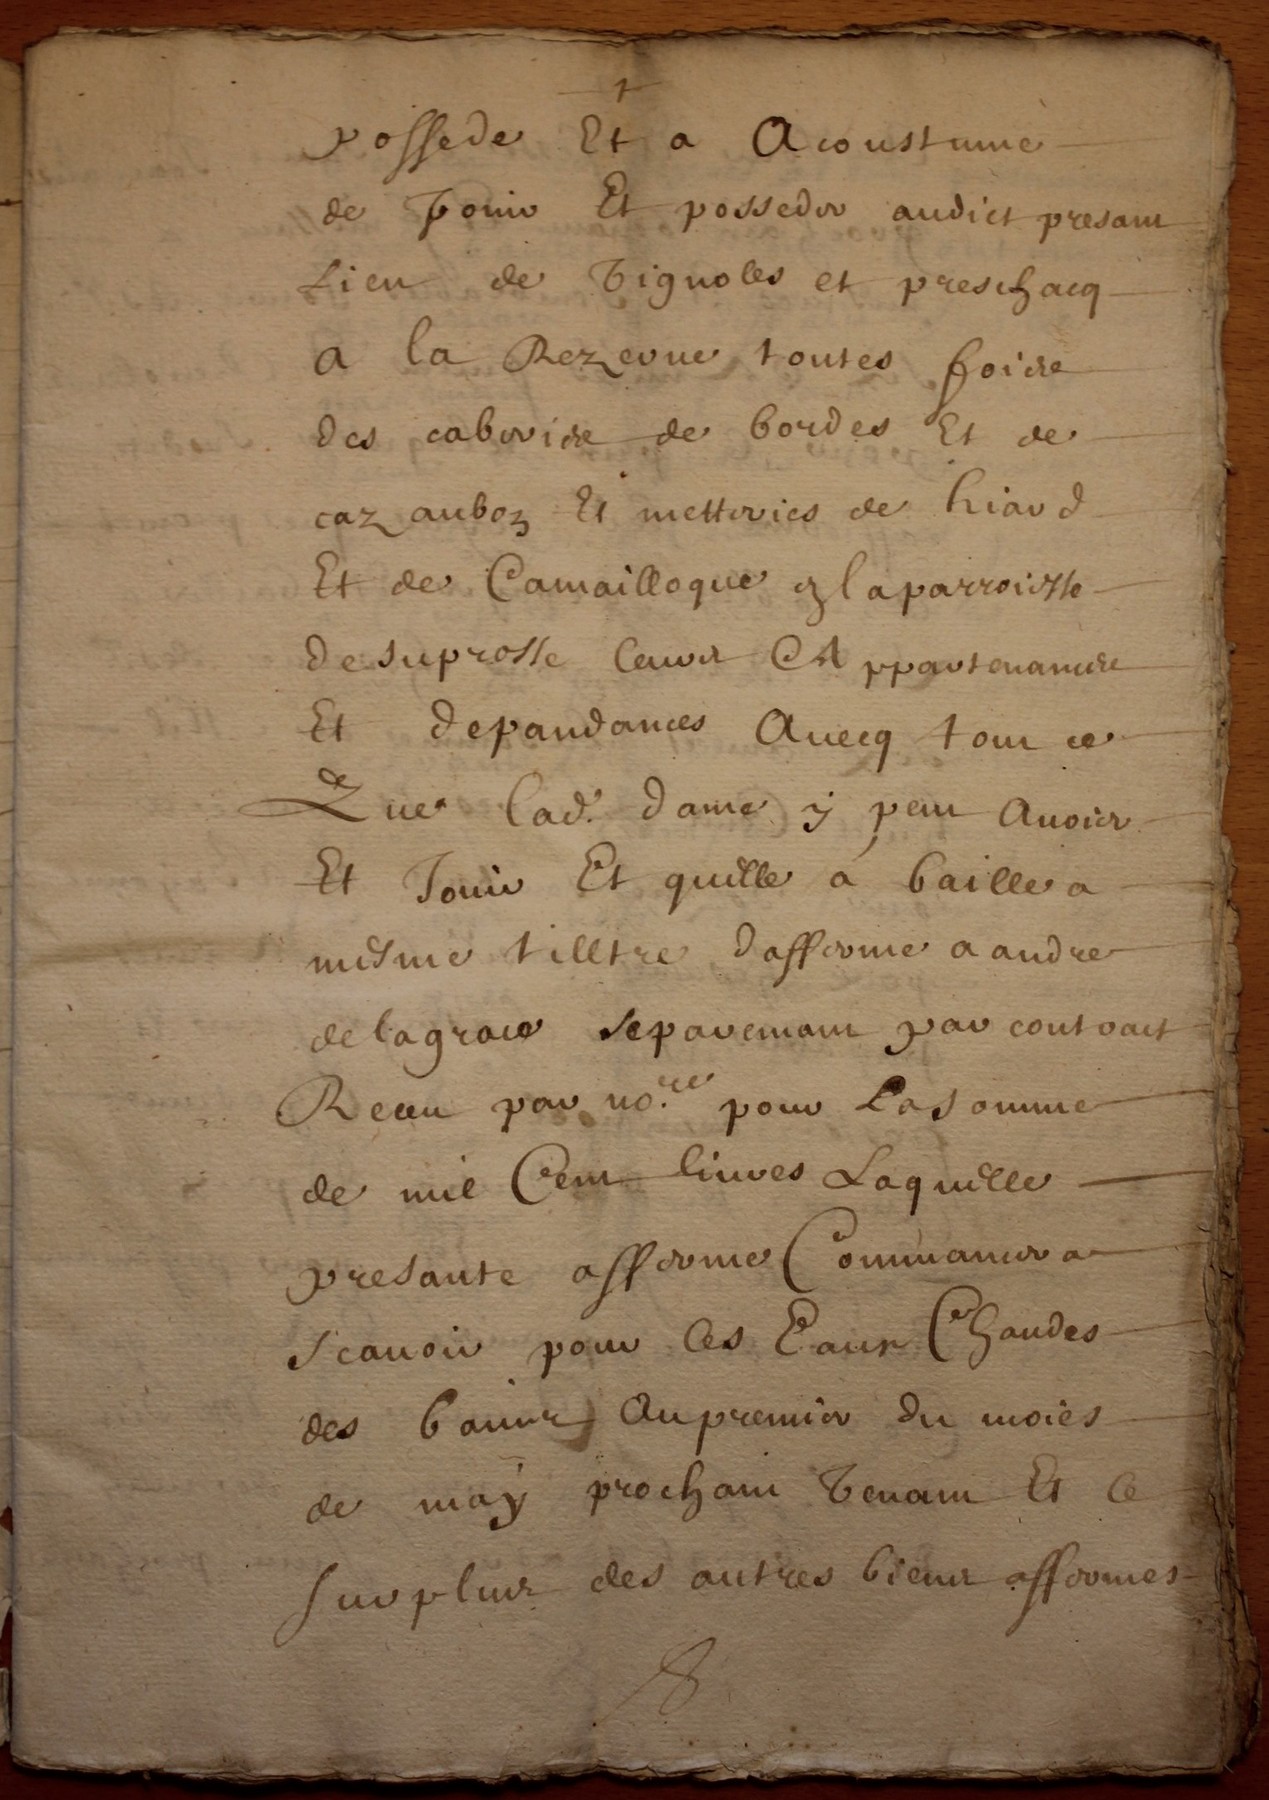 possede Et a Acoustume
de Jouir Et posseder audict presant
Lieu de Vignoles et preschacq
a la Rezerue toutes foiss
des caberiss de bordes Et de
cazaubon Et metteries de hiard
Et de Camailloque en la parroisse
de suprosse leurs Appartenances
Et depandances Auecq tout ce
Que lad. dame y peut Auoir
Et Jouir Et quelle á baille a
mesme tilltre dafferme a andre
de lagrace separemant par contract
Receu par no.re pour La somme
de mil Cent liures Laquelle
presante afferme Commancera
scauoir pour les Eaux Chaudes
des bains Au premier du moies
de may prochain Venant Et le
surplus des autres biens affermes